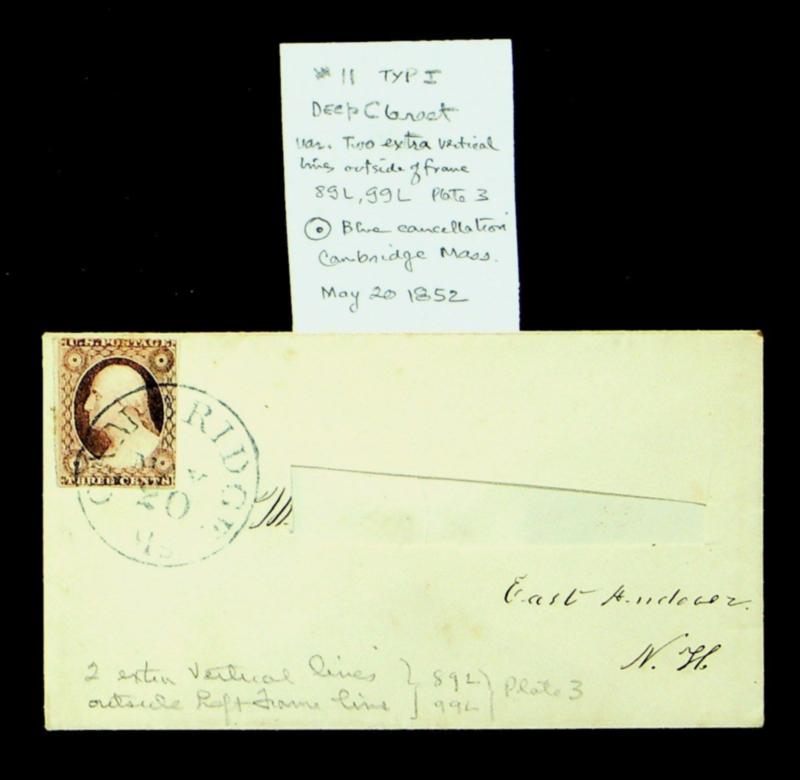 #11 TYP I
DEEP Claret
var. Two extra vertical
lines outside of frame
89L, 99L Plate 3
Blue cancellation
Cambridge Mass.
May 20 1852
U.S. POSTAGE
THREE CENTS
RIDGE
20
M
East Andover.
N. H
2 extra vertical lines } 89L } Plate 3
outside left frame line } 99L